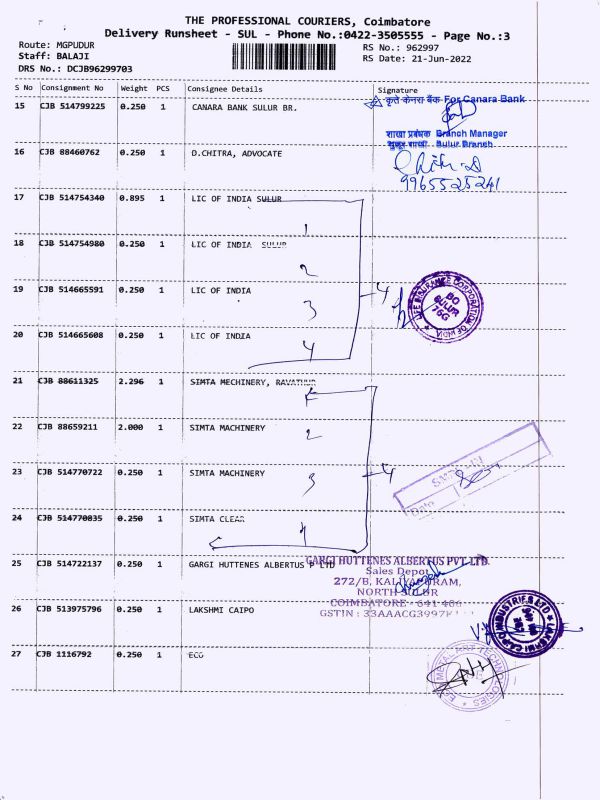 THE PROFESSIONAL COURIERS, Coimbatore
Delivery Runsheet - SUL - Phone No.:0422-3505555 - Page No.:3
Route: MGPUDUR
Staff: BALAJI
DRS No.: DCJB96299703
RS No.: 962997
RS Date: 21-Jun-2022
S No Consignment No Weight PCS Consignee Details Signature
15 CJB 514799225 0.250 1 CANARA BANK SULUR BR.
कृते केनरा बैंक For Canara Bank
शाखा प्रबंधक Branch Manager
सुलूर शाखा Sulur Branch
16 CJB 88460762 0.250 1 D.CHITRA, ADVOCATE
9965525241
17 CJB 514754340 0.895 1 LIC OF INDIA SULUR
1
18 CJB 514754980 0.250 1 LIC OF INDIA SULUR
2
19 CJB 514665591 0.250 1 LIC OF INDIA
3
4
LIFE INSURANCE CORPORATION OF INDIA
BO
SULUR
76G
20 CJB 514665608 0.250 1 LIC OF INDIA
4
21 CJB 88611325 2.296 1 SIMTA MECHINERY, RAVATHUR
1
22 CJB 88659211 2.000 1 SIMTA MACHINERY
2
23 CJB 514770722 0.250 1 SIMTA MACHINERY
3
4
Date
24 CJB 514770835 0.250 1 SIMTA CLEAR
4
25 CJB 514722137 0.250 1 GARGI HUTTENES ALBERTUS P LTD
GARGI HUTTENES ALBERTUS PVT.LTD.
Sales Depot
272/B, KALIYAPURAM,
NORTH SULUR
COIMBATORE - 641 406
GSTIN : 33AAACG3997K
26 CJB 513975796 0.250 1 LAKSHMI CAIPO
LAKSHMI CAIPO INDUSTRIES LTD
27 CJB 1116792 0.250 1 ECG
METAL ART TECHNOLOGIES